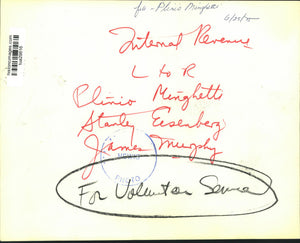 job - Plinio Minghetti
Internal Revenue
L to R
Plinio Minghetti
Stanley Eisenberg
James Murphy
NEWS
PHOTO
For Volunteer Service